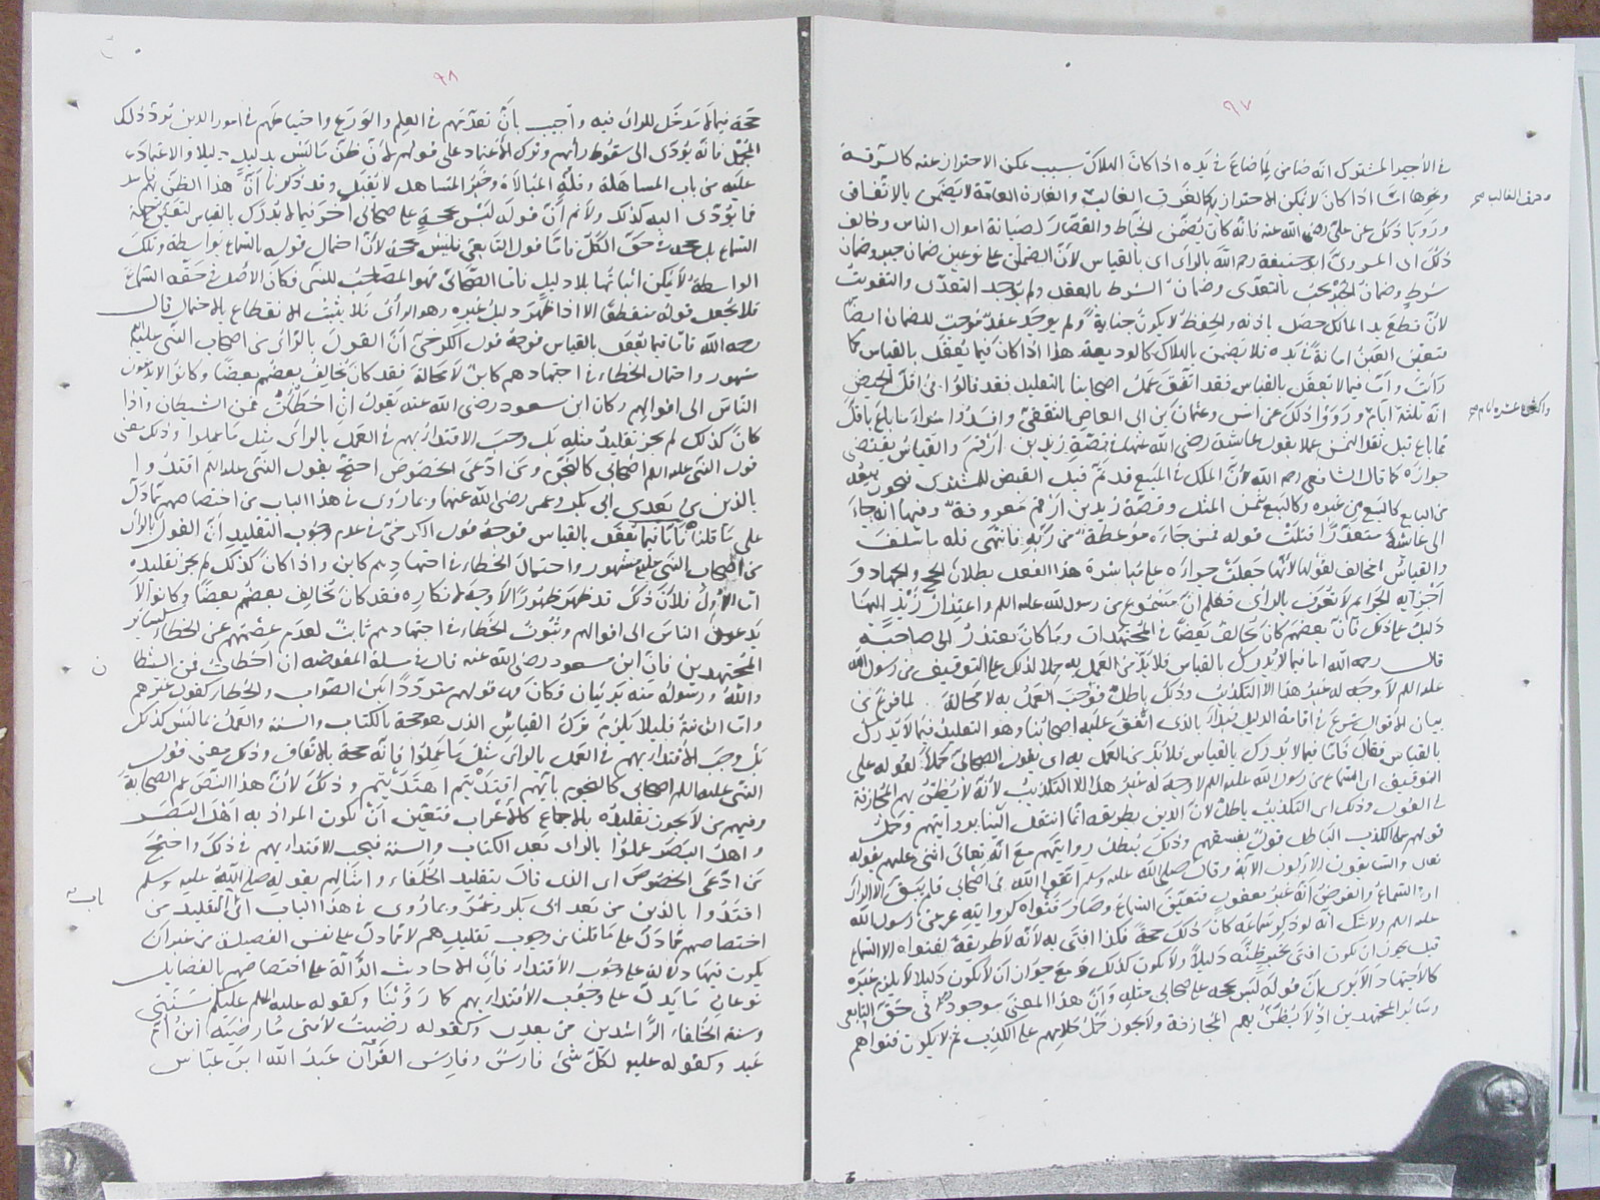 ٩٧
في الأجير المشترك انه ضامن لما ضاع في يده اذا كان الهلاك بسبب يمكن الاحتراز عنه كالسرقة
ونحوها امّا اذا كان لا يمكن الاحتراز كالغرق الغالب والغارة العامّة لا يضمن بالاتفاق
وروينا ذلك عن عليّ رضي الله عنه فانّه كان يُضمّن الخيّاط والقصّار لصيانة اموال الناس وخالف
ذلك اي المروي ابو حنيفة رحمه الله بالرأي اي بالقياس لأنّ الضمان على نوعين ضمان جبر وضمان
شرط وضمان الجبر يجب بالتعدّي وضمان الشرط بالعقد ولم يوجد التعدّي والتفويت
لأنّ قطع يد المالك حصل باذنه والحفظ لا يكون جناية ولم يوجد عقد موجب للضمان ايضًا
فتبقى العين امانة في يده فلا يضمن بالهلاك كالوديعة هذا اذا كان فيما يُعقل بالقياس كما
رأيت وامّا فيما لا يعقل بالقياس فقد اتّفق عمل اصحابنا بالتقليد فقد قالوا في اقلّ الحيض
انّه ثلثة ايّام ورووا ذلك عن انس وعثمان بن ابي العاص الثقفيّ وافسدوا شراء ما باع بأقلّ
ممّا باع قبل نقد الثمن عملا بقول عايشة رضي الله عنها في قصّة زيد بن ارقم والقياس يقتضي
جوازه كما قال الشافعي رحمه الله لأنّ الملك في المبيع قد تمّ قبل القبض للمشتري فيجوز بيعه
من البايع كالبيع من غيره وكالبيع بمثل الثمن وقصّة زيد بن ارقم معروفة وفيها انّه جاء
الى عائشة معتذرًا فتلت قوله فمن جاءه موعظة من ربّه فانتهى فله ما سلف
والقياس مخالف لقولها لأنّها جعلت جزاءه على مباشرة هذا الفعل بطلان الحج والجهاد و
اجزية الجرائم لا تعرف بالرأي فعلم انّ مسموع من رسول الله عليه السلم واعتذار زيد اليها
دليل على ذلك فانّ بعضهم كان يخالف بعضًا في المجتهدات وما كان يعتذر الى صاحبه
قال رحمه الله امّا فيما لا يُدرك بالقياس فلا بدّ من العمل به حملا لذلك على التوقيف من رسول الله
عليه السلم لا وجه له غير هذا الا التكذيب وذلك باطل فوجب العمل به لا محالة لما فرغ من
بيان الأقوال شرع في اقامة الدليل فبدأ بالذي اتّفق عليه اصحابنا وهو التقليد فيما لا يُدرك
بالقياس فقال فامّا فيما لا يدرك بالقياس فلا بدّ من العمل به اي بقول الصحابيّ حملًا لقوله على
التوقيف اي السماع من رسول الله عليه السلم لا وجه له غير هذا الا التكذيب لأنّه لا يُظنّ بهم المجازفة
في القول وذلك اي التكذيب باطل لأنّ الدين بطريقه انّما انتقل الينا بروايتهم وحمل
قولهم على الكذب الباطل قول بفسقهم وذلك يبطل روايتهم مع انّه تعالى اثنى عليهم بقوله
تعالى والسابقون الاولون الآية وقال صلى الله عليه وسلم اتّقوا الله في اصحابي فلم يبق الا الرأي
او السماع والفرض انّه غير معقول فتعيّن السماع وصار فتواه كروايته عن رسول الله
عليه السلم ولا شكّ انّه لو ذكر سماعه كان ذلك حجّة فكذا افتى به لأنّه لا طريقة لفتواه الا السماع
قيل يجوز ان يكون افتى بخبر ظنّه دليلًا ولا يكون كذلك ومع جواز ان لا يكون دليلًا لا يلزم غيره
كالاجتهاد ألا يرى انّ قوله ليس بحجة على صحابي مثله وانّ هذا المعنى موجود في حقّ التابعي
وسائر المجتهدين اذ لا يُظنّ بهم المجازفة ولا يجوز حمل كلامهم على الكذب ثم لا يكون فتواهم
وحرق الغالب صح
واكثره عشرة ايام صح
٩٨
حجة فيما لا مدخل للرأي فيه واجيب بانّ تقدّمهم في العلم والورع واحتياطهم في امور الدين تردّ ذلك
المحمل فانّه يؤدّي الى سقوط رأيهم وترك الاعتماد على قولهم لأنّ ظنّ ما ليس بدليل دليلا والاعتماد
عليه من باب المساهلة وقلّة المبالاة وخبر المتساهل لا يقبل وقد ذكرنا انّ هذا الظنّ بهم فاسد
فما يؤدّي اليه كذلك ولا نم انّ قوله ليس بحجّة على صحابيّ آخر فيما لا يدرك بالقياس لتعيّن جهة
السماع بل هو حجة في حقّ الكلّ فامّا قول التابعيّ فليس بحجة لأنّ احتمال قوله بالسماع بواسطة وتلك
الواسطة لا يمكن اثباتها بلا دليل فامّا الصحابيّ فهو المصاحب للنبي فكان الأصل في حقّه السماع
فلا يُجعل قوله منقطعًا الا اذا ظهر دليل غيره وهو الرأي فلا يثبت الانقطاع بالاحتمال قال
رحمه الله فامّا فيما يعقل بالقياس فوجه قول الكرخيّ انّ القول بالرّأي من اصحاب النبي عليه السلم
مشهور واحتمال الخطاء في اجتهادهم كائن لا محالة فقد كان يخالف بعضهم بعضًا وكانوا لا يدعون
الناس الى اقوالهم وكان ابن مسعود رضي الله عنه يقول ان اخطأت فمن الشيطان واذا
كان كذلك لم يجز تقليد مثله بل وجب الاقتداء بهم في العمل بالرأي مثل ما عملوا وذلك معنى
قول النبي عليه السلم اصحابي كالنجوم ومن ادّعى الخصوص احتجّ بقول النبي عليه السلم اقتدوا
بالذين من بعدي ابي بكر وعمر رضي الله عنهما وبما روي في هذا الباب من اختصاصهم ممّا دلّ
على ما قلنا فامّا فيما يعقل بالقياس فوجه قول الكرخيّ في عدم وجوب التقليد انّ القول بالرأي
من اصحاب النبي عليه السلم مشهور واحتمال الخطاء في اجتهادهم كاين واذا كان كذلك لم يجز تقليده
امّا الأوّل فلأنّ ذلك قد ظهر ظهورًا لا وجه لانكاره فقد كان يخالف بعضهم بعضًا وكانوا لا
يدعون الناس الى اقوالهم وثبوت الخطاء في اجتهادهم ثابت لعدم عصمتهم عن الخطاء كسائر
المجتهدين فانّ ابن مسعود رضي الله عنه قال في مسئلة المفوضة ان اخطأت فمن الشيطان
والله ورسوله منه بريئان وكان قولهم متردّدًا بين الصواب والخطاء كقول غيرهم
وامّا الثانية فلئلا يلزم ترك القياس الذي هو حجة بالكتاب والسنة والعمل بما ليس كذلك
بل وجب الاقتداء بهم في العمل بالرأي مثل ما عملوا فانّه حجة بالاتّفاق وذلك معنى قول
النبي عليه السلم اصحابي كالنجوم بأيّهم اقتديتم اهتديتم وذلك لأنّ هذا النصّ عمّ الصحابة
وفيهم من لا يجوز تقليده بالاجماع كالأعراب فتعيّن ان يكون المراد به اهل البصر
واهل البصر عملوا بالرأي بعد الكتاب والسنة فيجب الاقتداء بهم في ذلك واحتجّ
من ادّعى الخصوص اي الذي قال بتقليد الخلفاء وامثالهم بقوله صلى الله عليه وسلم
اقتدوا بالذين من بعدي ابي بكر وعمر وبما روي في هذا الباب اي التقليد من
اختصاصهم ممّا دلّ على ما قلنا من وجوب تقليدهم لا ممّا دلّ على نفس الفضيلة من غير ان
يكون فيها دلالة على وجوب الاقتداء فانّ الأحاديث الدّالّة على اختصاصهم بالفضايل
نوعان ما يدلّ على وجوب الاقتداء بهم كما روينا وكقوله عليه السلم عليكم بسنّتي
وسنة الخلفاء الرّاشدين من بعدي وكقوله رضيت لأمّتي ما رضيه ابن أمّ
عبد وكقوله عليه السلم لكلّ شيء فارس وفارس القرآن عبد الله ابن عبّاس